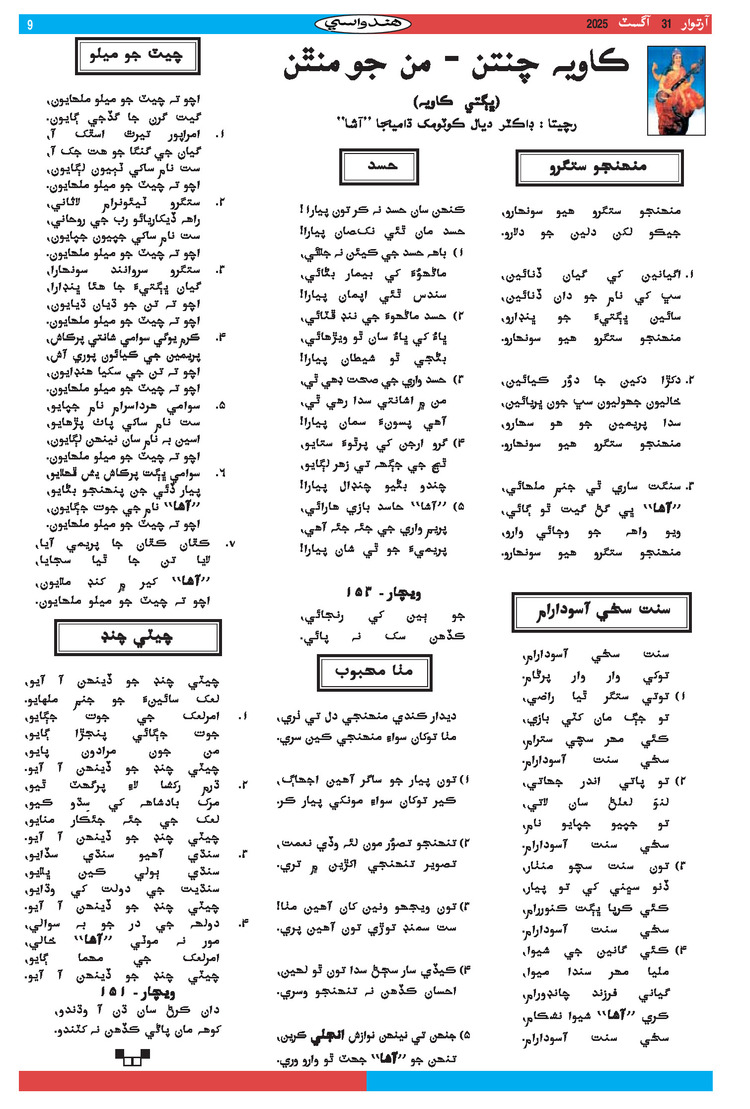 آرتوار 31 آگسٽ 2025
هندواسي
9
ڪاويه چنتن - من جو منٿن
(ڀڳتي ڪاويه)
رچيتا : ڊاڪٽر ديال ڪوٽومڪ ڌاميڄا ”آشا“
منهنجو ستگرو
منهنجو ستگرو هيو سونهارو،
جيڪو لکن دلين جو دلارو.
۱. اگيانين کي گيان ڏنائين،
سڀ کي نام جو دان ڏنائين،
سائين ڀڳتيءَ جو ڀنڊارو،
منهنجو ستگرو هيو سونهارو.
۲. دکڙا دکين جا دوُر ڪيائين،
خاليون جھوليون سڀ جون ڀريائين،
سدا پريمين جو هو سهارو،
منهنجو ستگرو هيو سونهارو.
۳. سنگت ساري ٿي جنم ملهائي،
”آشا“ پي گڻ گيت ٿو ڳائي،
ويو واهه جو وڄائي وارو،
منهنجو ستگرو هيو سونهارو.
سنت سڻي آسودارام
سنت سڻي آسودارام،
توکي وار وار پرڻام.
۱) توتي ستگر ٿيا راضي،
تو جڳ مان کٽي بازي،
ڪئي مهر سچي سترام،
سڻي سنت آسودارام.
۲) تو پاتي اندر جھاتي،
لنوَ لعلڻ سان لاتي،
تو جپيو جپايو نام،
سڻي سنت آسودارام.
۳) تون سنت سچو منٺار،
ڏنو سڀني کي تو پيار،
ڪئي ڪرپا ڀڳت ڪنوررام،
سڻي سنت آسودارام.
۴) ڪئي گانين جي شيوا،
مليا مهر سندا ميوا،
گياني فرزند چانڊورام،
ڪري ”آشا“ شيوا نشڪام،
سڻي سنت آسودارام.
حسد
ڪنهن سان حسد نه ڪر تون پيارا!
حسد مان ٿئي نقصان پيارا!
۱) باهه حسد جي ڪيئن نه جلائي،
ماڻهوُءَ کي بيمار بڻائي،
سندس ٿئي اپمان پيارا!
۲) حسد ماڻهوءَ جي ننڊ ڦٽائي،
ڀاءُ کي ڀاءُ سان ٿو ويڙهائي،
بڻجي ٿو شيطان پيارا!
۳) حسد واري جي صحت ڊهي ٿي،
من ۾ اشانتي سدا رهي ٿي،
آهي پسونءَ سمان پيارا!
۴) گرو ارجن کي پرٿوءَ ستايو،
ٿڃ جي جڳهه تي زهر لڳايو،
چندو بڻيو چنڊال پيارا!
۵) ”آشا“ حاسد بازي هارائي،
پريم واري جي جئه جئه آهي،
پريميءَ جو ٿي شان پيارا!
ويچار- ۱۵۳
جو ٻين کي رنجائي،
ڪڏهن سک نه پائي.
مٺا محبوب
ديدار ڪندي منهنجي دل ٿي ٺري،
مٺا توکان سواءِ منهنجي ڪين سري.
۱) تون پيار جو ساگر آهين اجھاڳ،
ڪير توکان سواءِ مونکي پيار ڪر.
۲) تنهنجو تصوُر مون لئه وڏي نعمت،
تصوير تنهنجي اکڙين ۾ تري.
۳) تون ويجھو ونين کان آهين مٺا!
ست سمنڊ توڙي تون آهين پري.
۴) ڪيڏي سار سڄڻ سدا تون ٿو لهين،
احسان ڪڏهن نه تنهنجو وسري.
۵) جنهن تي نينهن نوازش انجلي ڪرين،
تنهن جو ”آشا“ جھٽ ٿو وارو وري.
چيٽ جو ميلو
اچو ته چيٽ جو ميلو ملهايون،
گيت گرن جا گڏجي ڳايون.
۱. امراپور تيرٿ استڪ آ،
گيان جي گنگا جو هت جڪ آ،
ست نام ساکي ٽپيون لڳايون،
اچو ته چيٽ جو ميلو ملهايون.
۲. ستگرو ٽيئونرام لاثاني،
راهه ڏيکاريائو رب جي روحاني،
ست نام ساکي جپيون جپايون،
اچو ته چيٽ جو ميلو ملهايون.
۳. ستگرو سروانند سونهارا،
گيان ڀڳتيءَ جا هئا ڀنڊارا،
اچو ته تن جو ڌيان ڌيايون،
اچو ته چيٽ جو ميلو ملهايون.
۴. ڪرم يوگي سوامي شانتي پرڪاش،
پريمين جي ڪيائون پوري آش،
اچو ته تن جي سکيا هنڊايون،
اچو ته چيٽ جو ميلو ملهايون.
۵. سوامي هرداسرام نام جپايو،
ست نام ساکي پاٺ پڙهايو،
اسين به نام سان نينهن لڳايون،
اچو ته چيٽ جو ميلو ملهايون.
۶. سوامي ڀڳت پرڪاش يش ڦهلايو،
پيار ڏئي جن پنهنجو بڻايو،
”آشا“ نام جي جوت جڳايون،
اچو ته چيٽ جو ميلو ملهايون.
۷. ڪٿان ڪٿان جا پريمي آيا،
لايا تن جا ٿيا سجايا،
”آشا“ کير ۾ کنڊ ملايون،
اچو ته چيٽ جو ميلو ملهايون.
چيٽي چنڊ
چيٽي چنڊ جو ڏينهن آ آيو،
لعل سائينءَ جو جنم ملهايو.
۱. امرلعل جي جوت جڳايو،
جوت جڳائي پنجڙا ڳايو،
من جون مرادون پايو،
چيٽي چنڊ جو ڏينهن آ آيو.
۲. ڌرم رکشا لاءِ پرگهٽ ٿيو،
مرک بادشاهه کي سِڌو ڪيو،
لعل جي جئه جئڪار منايو،
چيٽي چنڊ جو ڏينهن آ آيو.
۳. سنڌي آهيو سنڌي سڏايو،
سنڌي ٻولي ڪين ڀلايو،
سنڌيت جي دولت کي وڌايو،
چيٽي چنڊ جو ڏينهن آ آيو.
۴. دولهه جي در جو به سوالي،
مور نه موٽي ”آشا“ خالي،
امرلعل جي مهما ڳايو،
چيٽي چنڊ جو ڏينهن آ آيو.
ويچار- ۱۵۱
دان ڪرڻ سان ڌن آ وڌندو،
کوهه مان پاڻي ڪڏهن نه کٽندو.